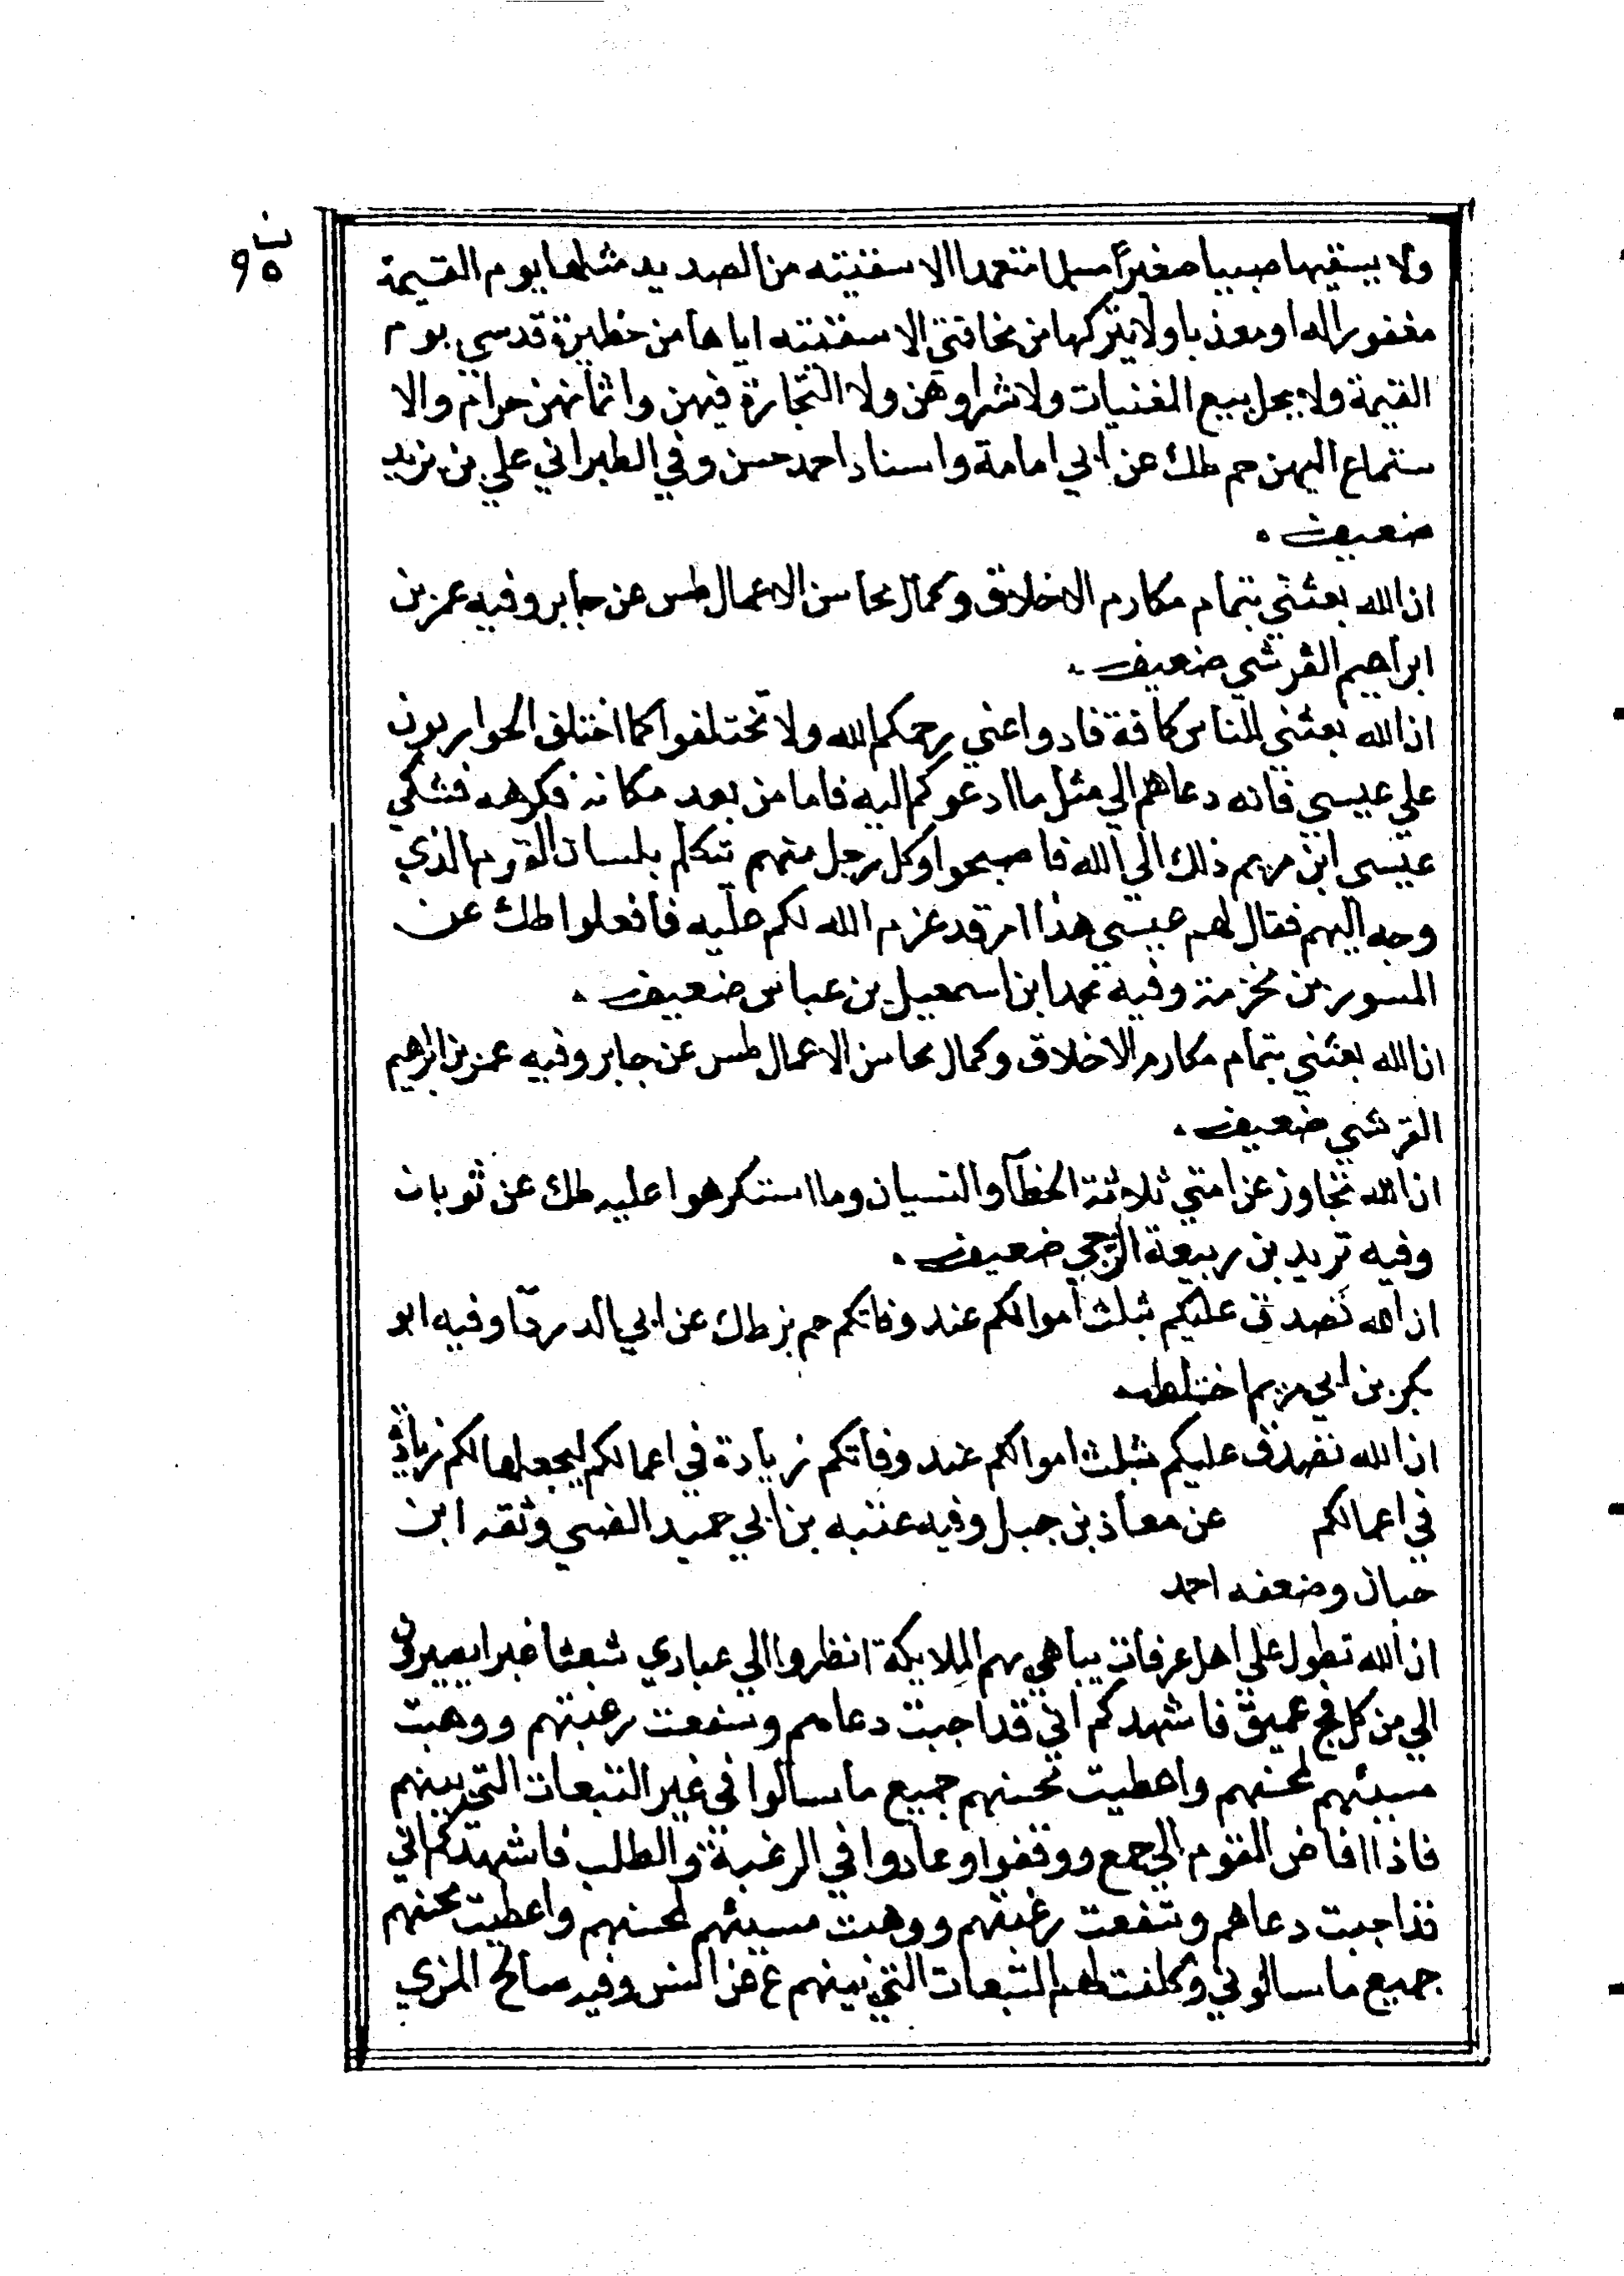 ب
٩٥
ولا يسقيها صبيا صغيراً مسلما متعمدا الا سقيته من الصديد مثلها يوم القيمة
مغفورا له او معذبا ولا يتركها من مخافتي الا سقيته اياها من حظيرة قدسي يوم
القيمة ولا يحل بيع المغنيات ولا شراوهن ولا التجارة فيهن واثمانهن حرام والا
ستماع اليهن حم طك عن ابي امامة واسناد احمد حسن وفي الطبراني علي بن يزيد
ضعيف
ان الله بعثني بتمام مكارم الاخلاق وكمال محاسن الاعمال طس عن جابر وفيه عمر بن
ابراهيم القرشي ضعيف
ان الله بعثني للناس كافة فادوا عني رحمكم الله ولا تختلفوا كما اختلف الحواريون
علي عيسي فانه دعاهم الي مثل ما ادعوكم اليه فاما من بعد مكانه فكرهه فشكي
عيسى ابن مريم ذلك الي الله فاصبحوا وكل رجل منهم تتكلم بلسان القوم الذي
وجه اليهم فقال لهم عيسي هذا امر قد عزم الله لكم عليه فافعلوا طك عن
المسور بن مخرمة وفيه محمد ابن اسمعيل بن عباس ضعيف
ان الله بعثني بتمام مكارم الاخلاق وكمال محاسن الاعمال طس عن جابر وفيه عمر بن ابرهيم
القرشي ضعيف
ان الله تجاوز عن امتي ثلاثة الخطآ والنسيان وما استكرهوا عليه طك عن ثوبان
وفيه يزيد بن ربيعة الرحبي ضعيف
ان الله تصدق عليكم بثلث اموالكم عند وفاتكم حم بز طك عن ابي الدردآ وفيه ابو
بكر بن ابي مريم اختلط
ان الله تصدق عليكم بثلث اموالكم عند وفاتكم زيادة في اعمالكم ليجعلها لكم زيادة
في اعمالكم عن معاذ بن جبل وفيه عتبه بن ابي حميد الضبي وثقه ابن
حبان وضعفه احمد
ان الله تطول علي اهل عرفات يباهي بهم الملايكة انظروا الي عبادي شعثا غبرا يضربون
الي من كل فج عميق فاشهدكم اني قد اجبت دعاهم وشفعت رغبتهم ووهبت
مسيئهم لمحسنهم واعطيت محسنهم جميع ما سالوا في غير التبعات التي بينهم
فاذا افاض القوم الي جمع ووقفوا وعادوا في الرغبة والطلب فاشهدكم اني
قد اجبت دعاهم وشفعت رغبتهم ووهبت مسيئهم لمحسنهم واعطيت محسنهم
جميع ما سالوني وكلفت لهم التبعات التي بينهم ع عن انس وفيه صالح المزي